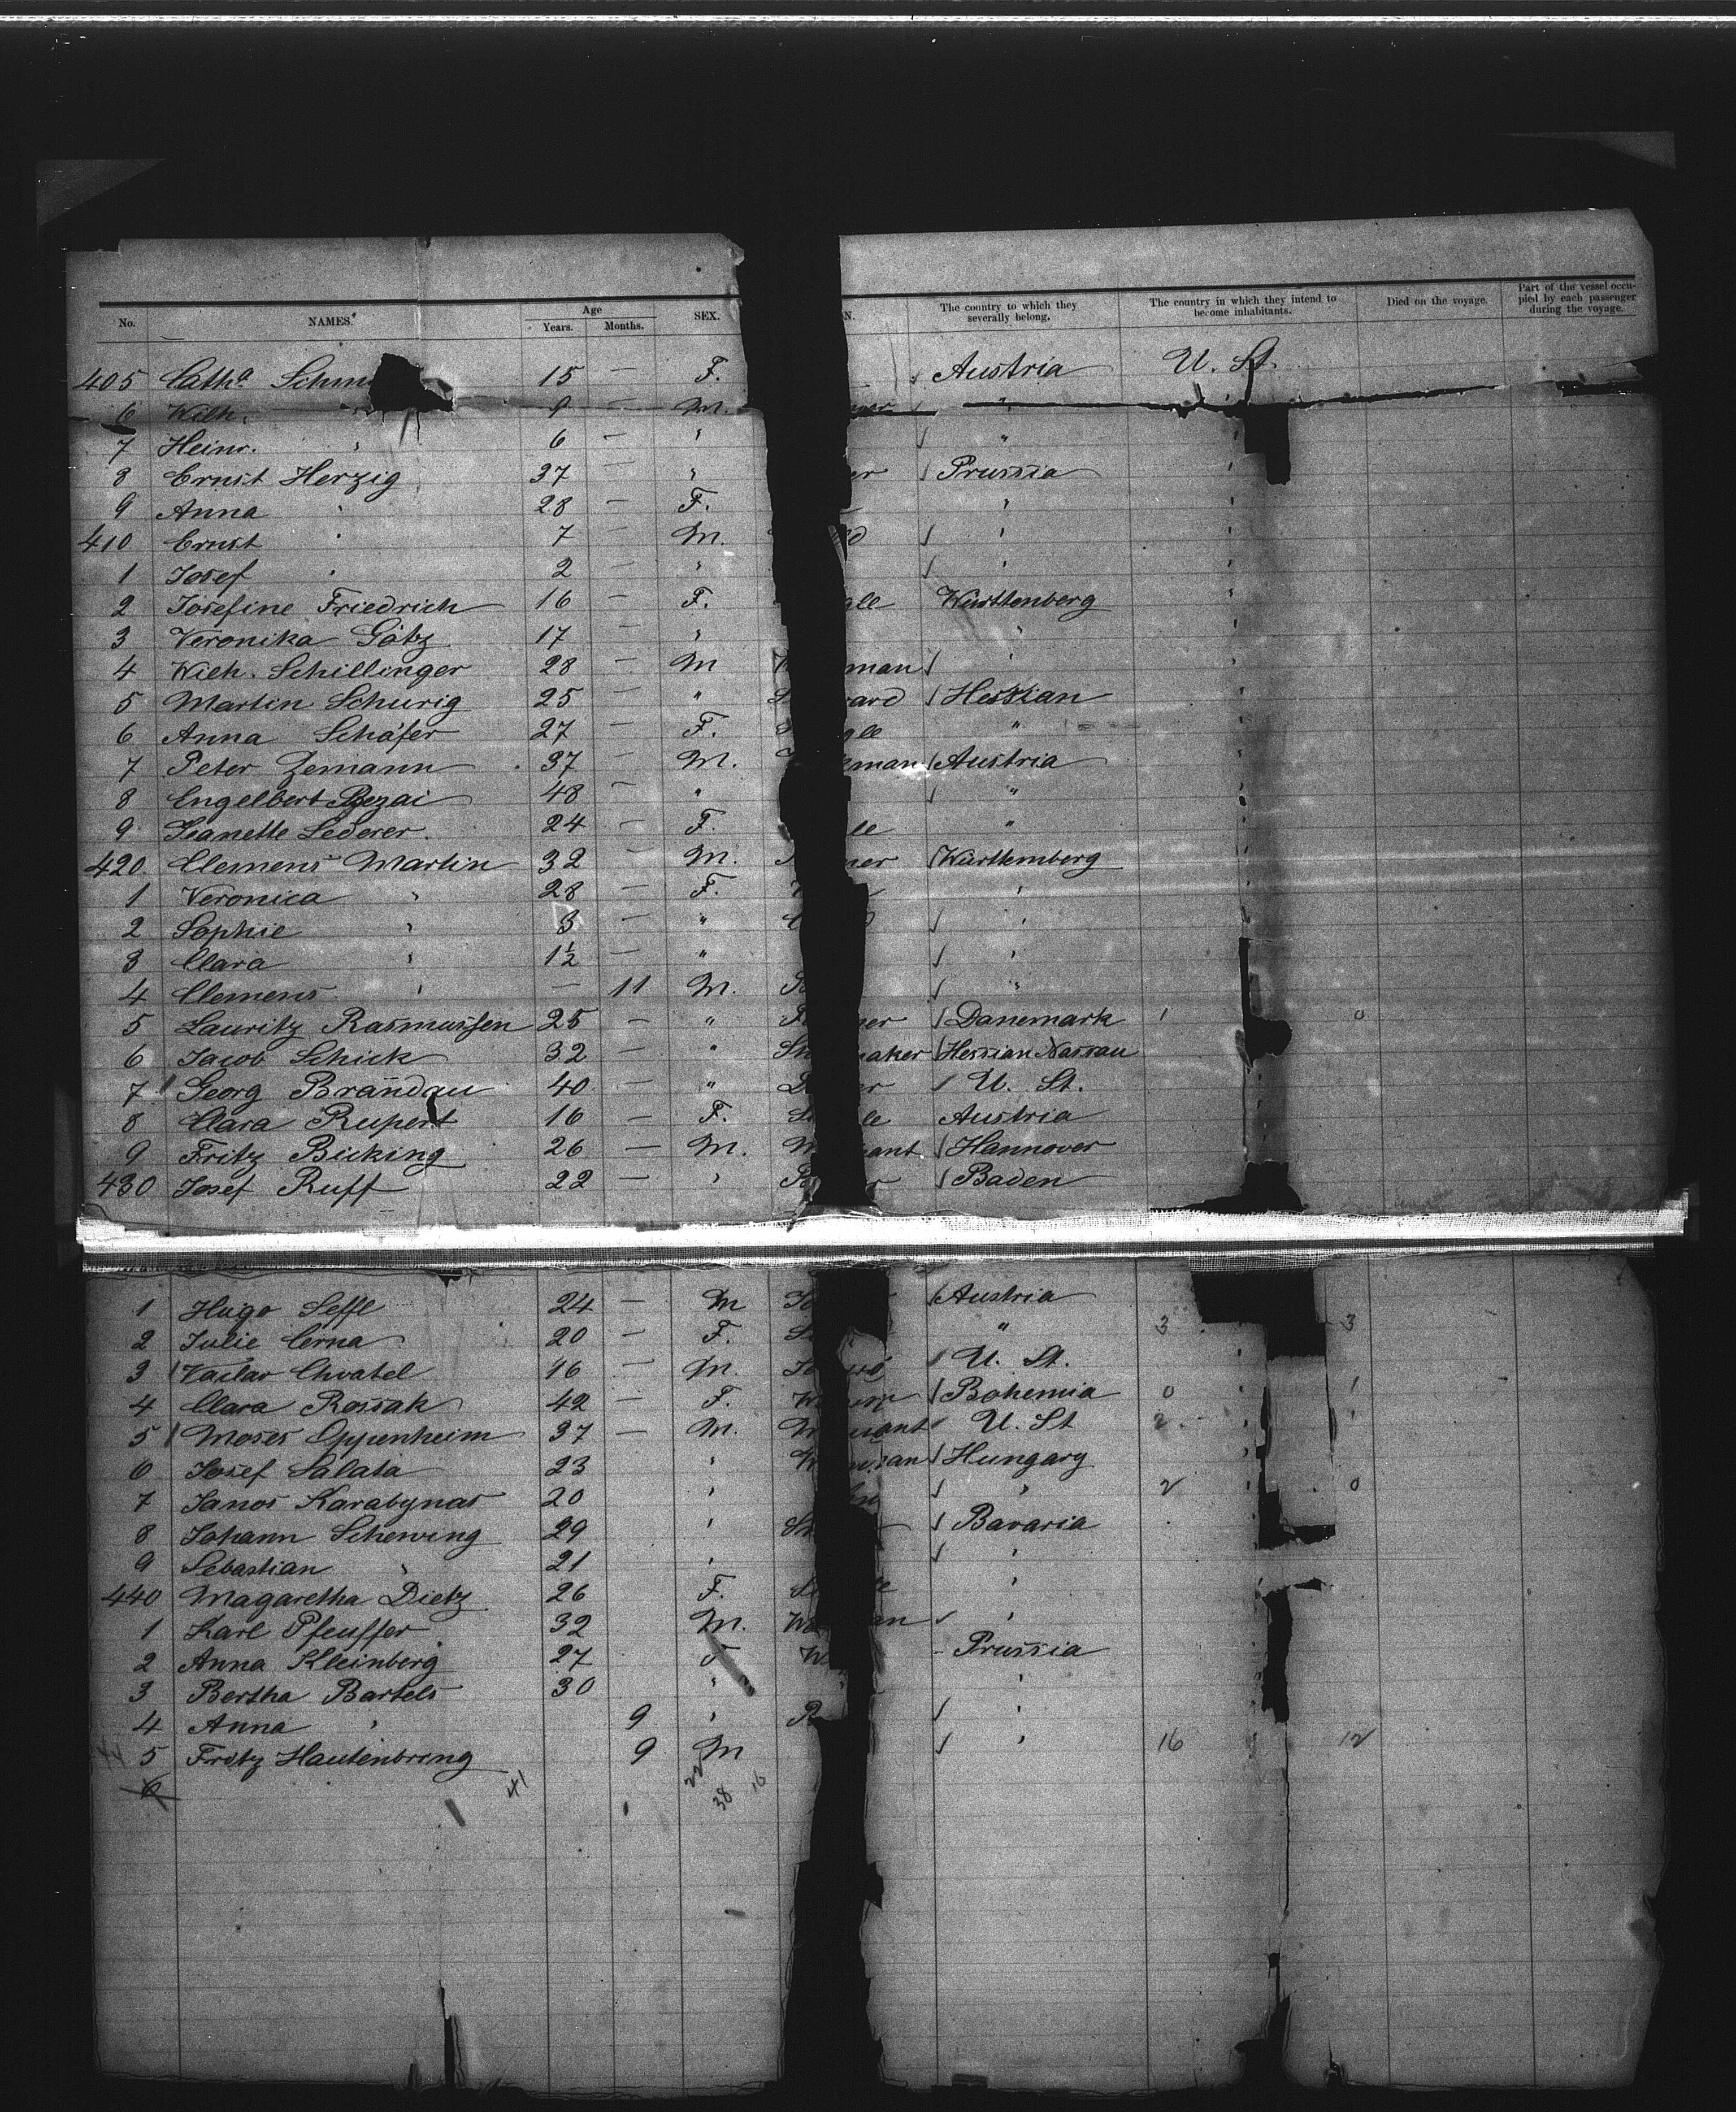 No. NAMES. Age Years. Months. SEX. N. The country to which they severally belong. The country in which they intend to become inhabitants. Died on the voyage. Part of the vessel occupied by each passenger during the voyage.
405 Catha Schm 15 — F. — Austria U. St.
6 Wilh. " 9 — M. "
7 Heinr. " 6 — " "
8 Ernst Herzig 37 — " er Prussia "
9 Anna " 28 — F. — " "
410 Ernst " 7 — M. d " "
1 Josef " 2 — " " "
2 Josefine Friedrich 16 — F. gle Württenberg "
3 Veronika Götz 17 — " " "
4 Wilh. Schillinger 28 — M W man " "
5 Martin Schurig 25 — " S ard Hessian "
6 Anna Schäfer 27 — F. S gle " "
7 Peter Zemann 37 M. kman Austria "
8 Engelbert 48 — " " "
9 Jeanette Lederer 24 — F. le " "
420 Clemens Martin 32 — M. ner Württemberg "
1 Veronica " 28 — F. W " "
2 Sophie " 3 — " C d " "
3 Clara " 1½ — " " "
4 Clemens " — 11 M. S " "
5 Lauritz Rasmussen 25 — " F ner Danemark 1 0
6 Jacob Schick 32 — " Sh maker Hessian Nassau
7 Georg Brandau 40 — " er U. St. "
8 Clara Rupert 16 — F. Si le Austria "
9 Fritz Bicking 26 — M. M ant Hannover "
430 Josef Ruff 22 — " r Baden
1 Hugo Seffl 24 — M Austria
2 Julie Cerna 20 — F. S " 3 3
3 Vaclav Chvatel 16 — M. U. St. "
4 Clara Rossak 42 — F. W Bohemia 0 " 1
5 Moses Oppenheim 37 — M. M ant U. St 2 " 1
6 Josef Salata 23 " W man Hungary "
7 Janos Karabynas 20 " " 2 " 0
8 Johann Schewing 29 " Bavaria
9 Sebastian " 21 " "
440 Magaretha Dietz 26 F. Si le "
1 Karl Pfeuffer 32 M. Wo an "
2 Anna Kleinberg 27 F W Prussia
3 Bertha Bartels 30 " "
4 Anna " 9 " "
5 Fritz Hautenbring 9 M " 16 12
6 41 22 38 16